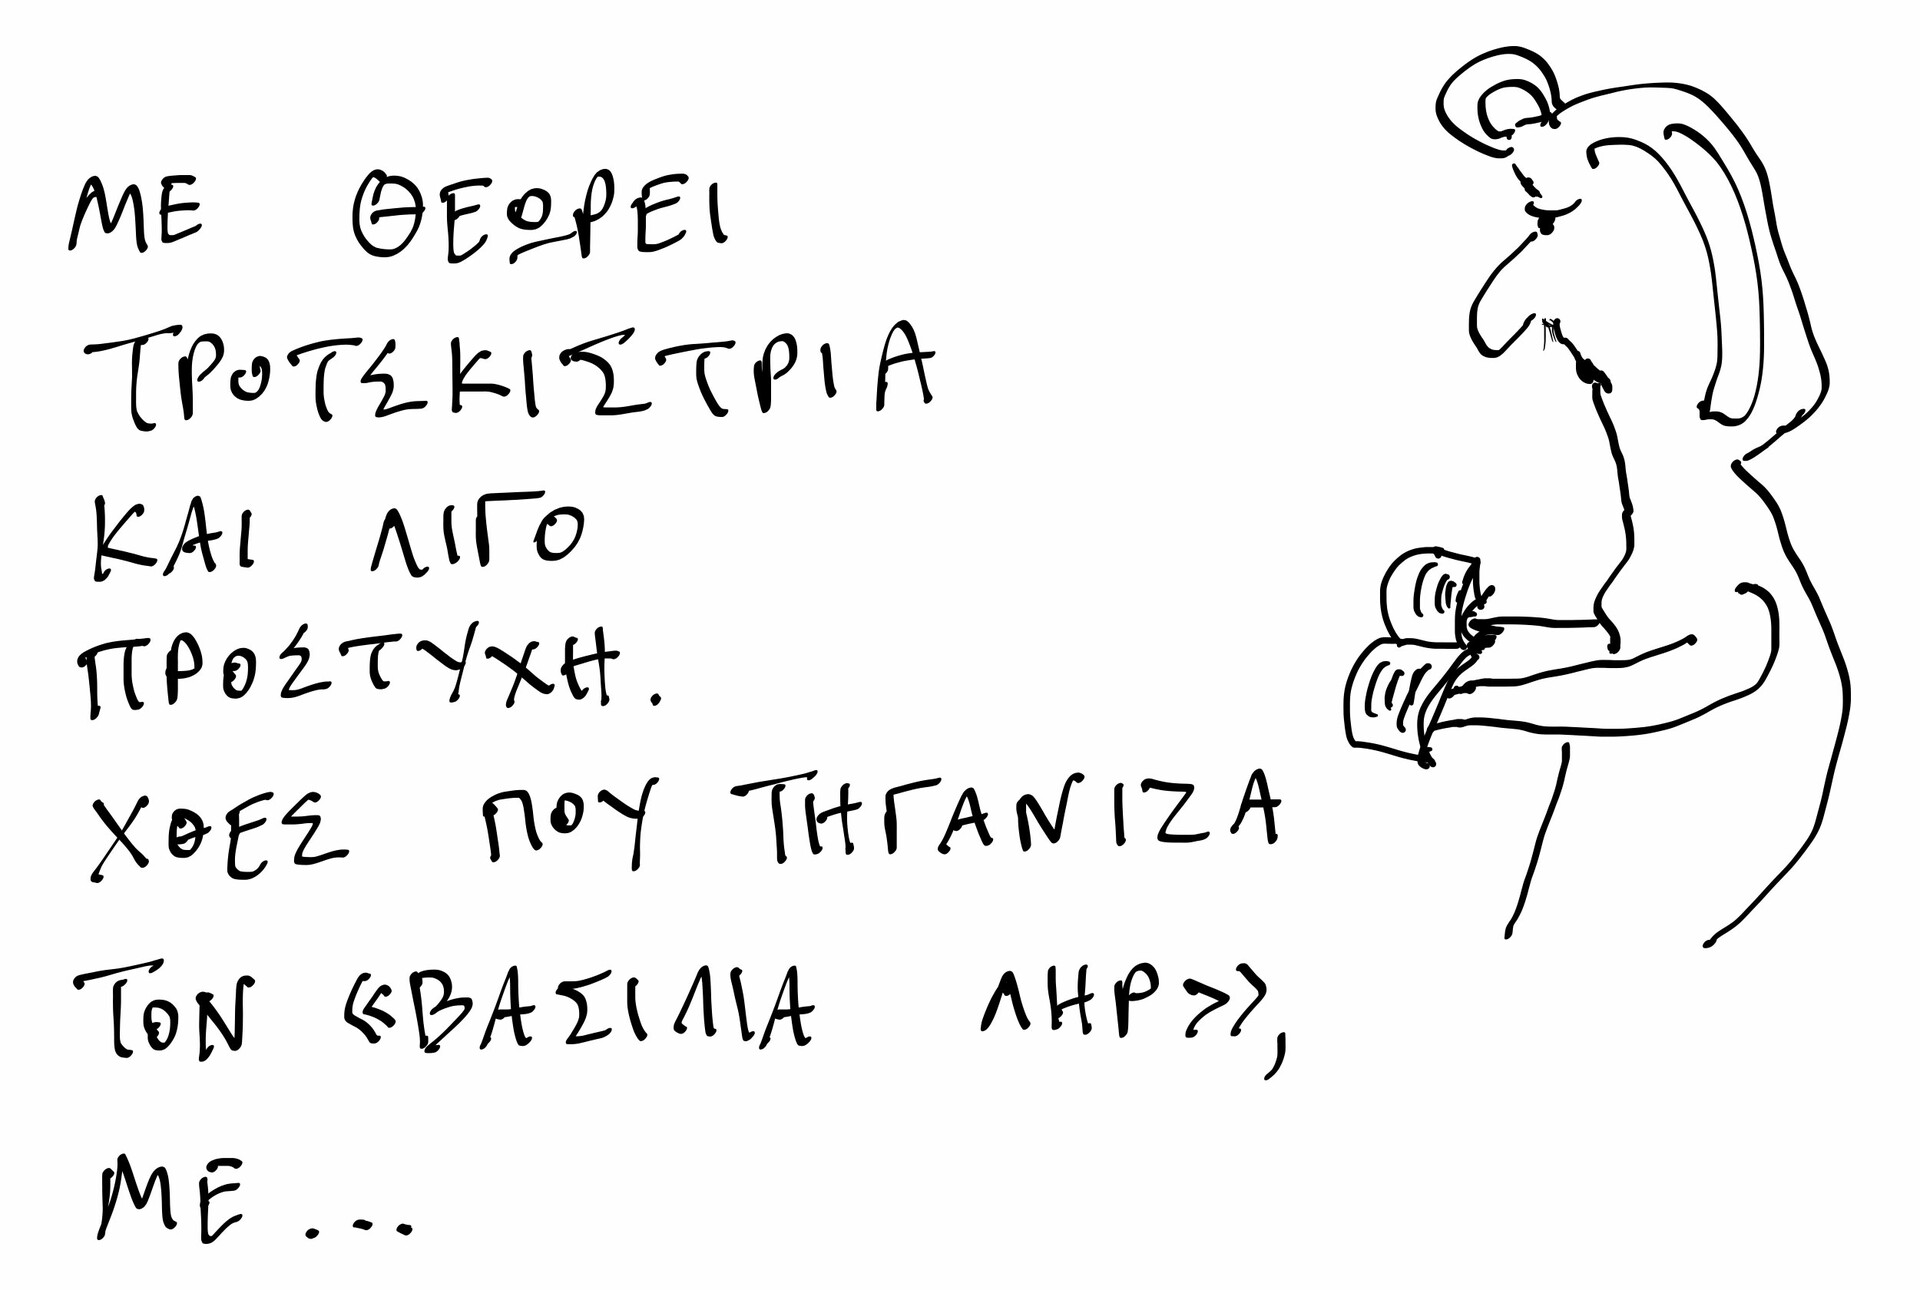 ΜΕ ΘΕΩΡΕΙ
ΤΡΟΤΣΚΙΣΤΡΙΑ
ΚΑΙ ΛΙΓΟ
ΠΡΟΣΤΥΧΗ.
ΧΘΕΣ ΠΟΥ ΤΗΓΑΝΙΖΑ
ΤΟΝ «ΒΑΣΙΛΙΑ ΛΗΡ»,
ΜΕ...